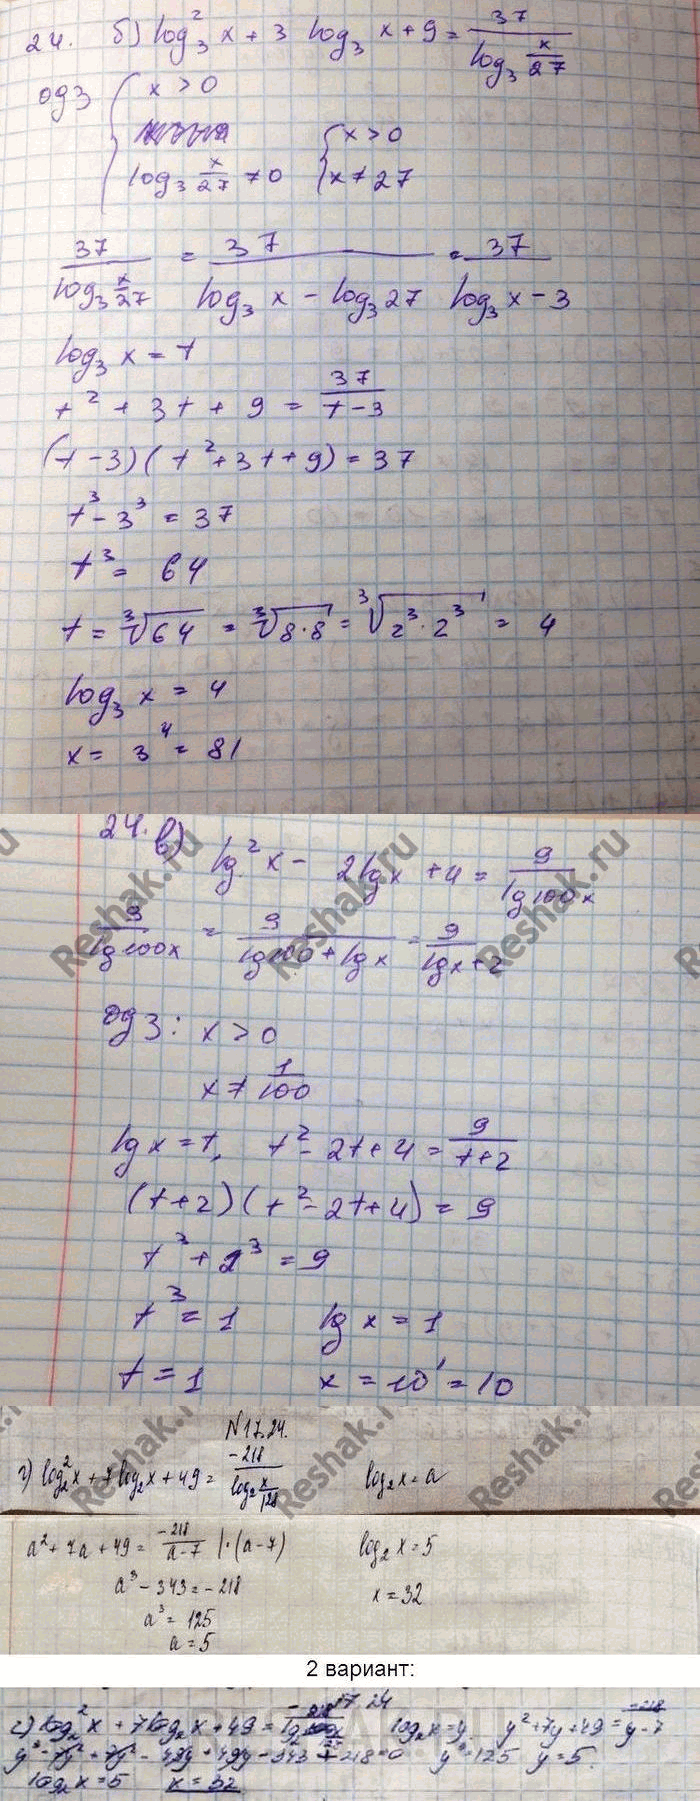 24. б) log₃² x + 3 log₃ x + 9 = 37 / log₃ x/27
одз { x > 0
log₃ x/27 ≠ 0 { x > 0
x ≠ 27
37 / log₃ x/27 = 37 / log₃ x − log₃ 27 = 37 / log₃ x − 3
log₃ x = t
t² + 3t + 9 = 37 / t − 3
(t − 3)(t² + 3t + 9) = 37
t³ − 3³ = 37
t³ = 64
t = ∛64 = ∛8·8 = ∛2³·2³ = 4
log₃ x = 4
x = 3⁴ = 81
24. в)
lg² x − 2lgx + 4 = 9 / lg100x
9 / lg100x = 9 / lg100 + lgx = 9 / lgx + 2
одз: x > 0
x ≠ 1/100
lgx = t, t² − 2t + 4 = 9 / t + 2
(t + 2)(t² − 2t + 4) = 9
t³ + 2³ = 9
t³ = 1 lg x = 1
t = 1 x = 10¹ = 10
Reshak.ru
N17.24.
г) log₂² x + 7log₂x + 49 = −218 / log₂ x/128 log₂x = a
a² + 7a + 49 = −218 / a − 7 |·(a − 7) log₂x = 5
a³ − 343 = −218 x = 32
a³ = 125
a = 5
2 вариант:
17 24
г) log₂² x + 7log₂x + 49 = log₂x = y y² + 7y + 49 = −218 / y − 7
y³ − 7y² + 7y² − 49y + 49y − 343 + 218 = 0 y³ = 125 y = 5.
log₂x = 5 x = 32